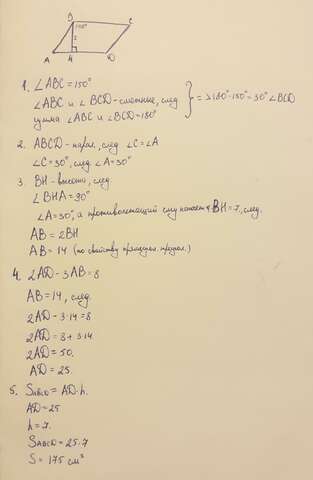 B
C
150°
7
A
H
D
1. ∠ABC = 150°
∠ABC и ∠BCD - смежные, след.
сумма ∠ABC и ∠BCD = 180°
} => 180° - 150° = 30° ∠BCD
2. ABCD - пар., след. ∠C = ∠A
∠C = 30°, след. ∠A = 30°
3. BH - высота, след.
∠BHA = 90°
∠A = 30°, а противолежащий ему катет BH = 7, след.
AB = 2BH
AB = 14 (по свойству прямоугол. треуг.)
4. 2AD - 3AB = 8
AB = 14, след.
2AD - 3·14 = 8
2AD = 8 + 3·14
2AD = 50.
AD = 25.
5. SABCD = AD·h.
AD = 25
h = 7.
SABCD = 25·7
S = 175 см²